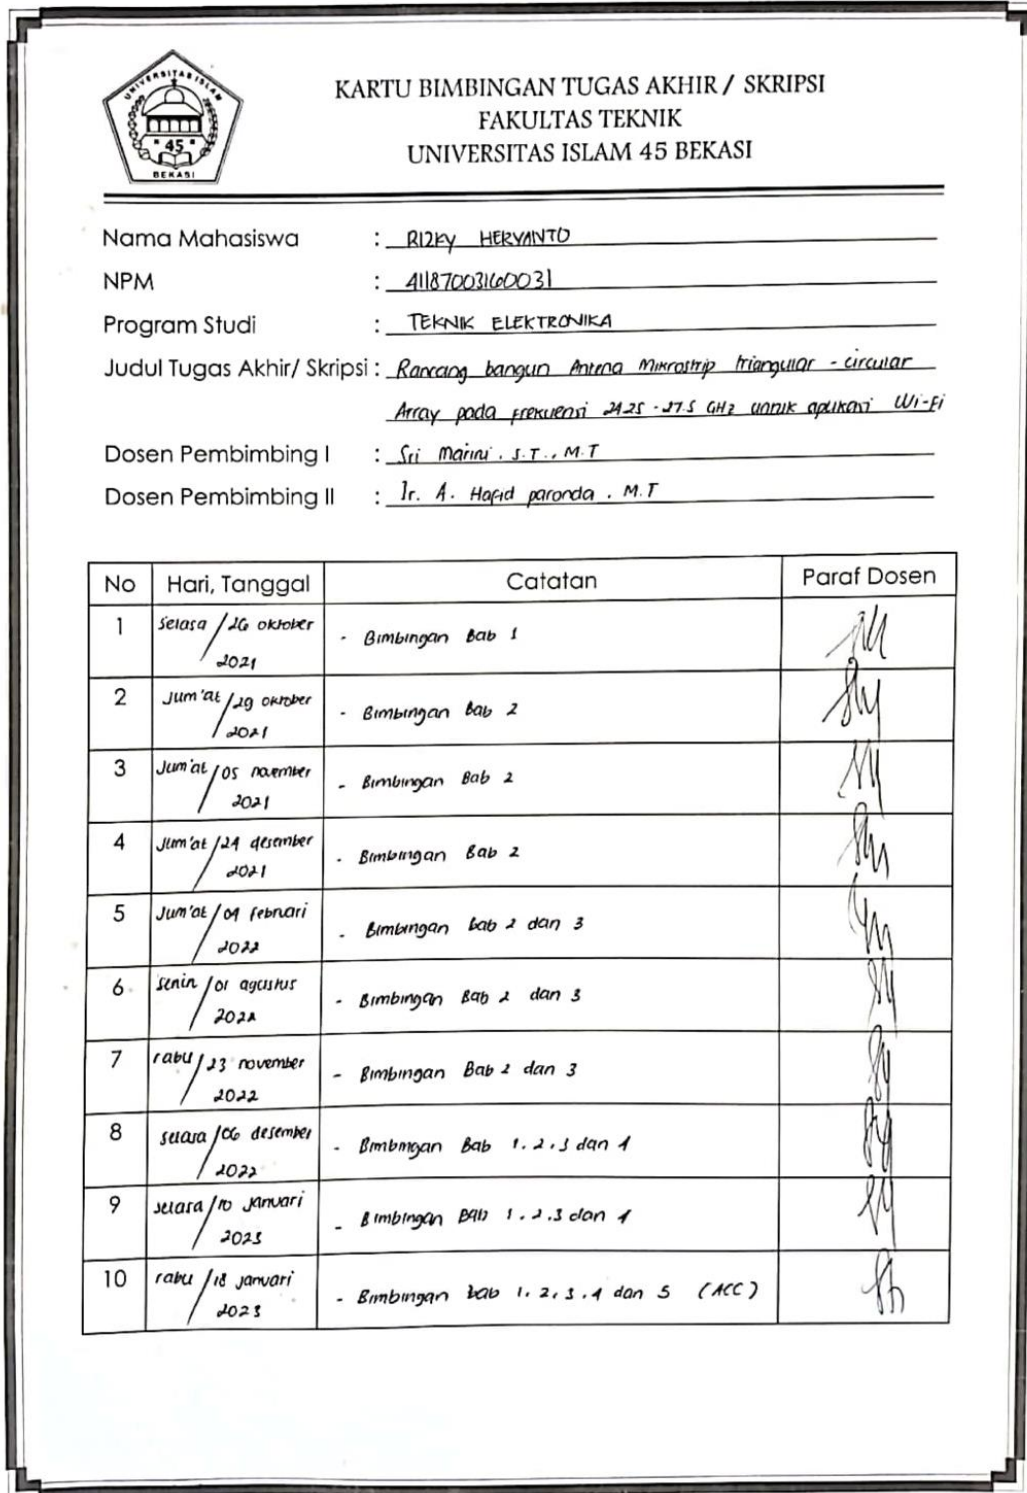 UNIVERSITAS ISLAM
"45"
BEKASI
KARTU BIMBINGAN TUGAS AKHIR / SKRIPSI
FAKULTAS TEKNIK
UNIVERSITAS ISLAM 45 BEKASI
Nama Mahasiswa : RIZKY HERYANTO
NPM : 41187003160031
Program Studi : TEKNIK ELEKTRONIKA
Judul Tugas Akhir/ Skripsi : Rancang bangun Antena Mikrostrip triangular - circular
Array pada frekuensi 24.25 - 27.5 GHz untuk aplikasi Wi-Fi
Dosen Pembimbing I : Sri Marini . S.T., M.T
Dosen Pembimbing II : Ir. A. Hafid paronda . M.T
No Hari, Tanggal Catatan Paraf Dosen
1 selasa / 26 oktober 2021 - Bimbingan Bab 1
2 Jum'at / 29 oktober 2021 - Bimbingan Bab 2
3 Jum'at / 05 november 2021 - Bimbingan Bab 2
4 Jum'at / 24 desember 2021 - Bimbingan Bab 2
5 Jum'at / 04 februari 2022 - Bimbingan bab 2 dan 3
6 senin / 01 agustus 2022 - Bimbingan Bab 2 dan 3
7 rabu / 23 november 2022 - Bimbingan Bab 2 dan 3
8 selasa / 06 desember 2022 - Bimbingan Bab 1.2.3 dan 4
9 selasa / 10 januari 2023 - Bimbingan Bab 1.2.3 dan 4
10 rabu / 18 januari 2023 - Bimbingan bab 1.2.3.4 dan 5 (ACC)